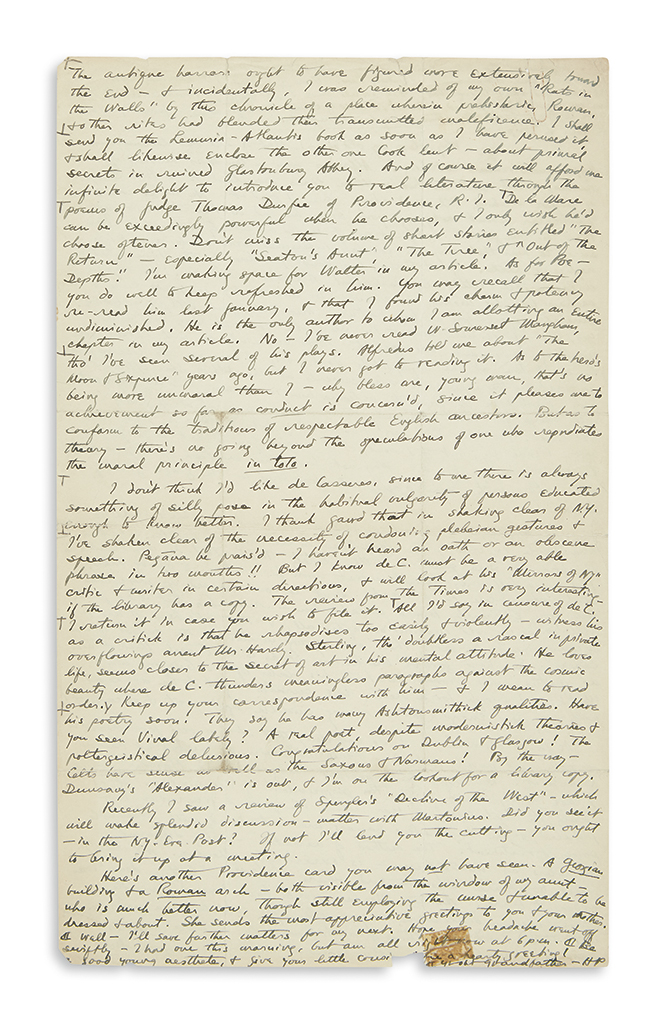 The antique harness ought to have figured more extensively toward
the End — & incidentally, I was reminded of my own "Rats in
the Walls" by this chronicle of a place wherein prehistoric, Roman,
& other rites had blended then transmitted maleficence. I shall
send you the Lemuria-Atlantis book as soon as I have perused it
& shall likewise enclose the other one Cook lent — about primal
secrets in ruined Glastonbury Abbey. And of course it will afford me
infinite delight to introduce you to real literature through the
poems of Judge Thomas Durfee of Providence, R.I. De la Mare
can be exceedingly powerful when he chooses, & I only wish he'd
choose oftener. Don't miss the volume of short stories entitled "The
Return" — especially "Seaton's Aunt", "The Tree", & "Out of the
Depths!" I'm making space for Walter in my article. As for Poe —
you do well to keep refreshed in him. You may recall that I
re-read him last January, & that I found his charm & potency
undiminished. He is the only author to whom I am allotting an entire
chapter in my article. No — I've never read W. Somerset Maugham,
tho' I've seen several of his plays. Alfredus told me about "The
Moon & Sixpence" years ago, but I never got to reading it. As to the hero's
being more unmoral than I — why bless me, young man, that's no
achievement so far as conduct is concern'd, since it pleases me to
conform to the traditions of respectable English ancestors. But as to
theory — there's no going beyond the speculations of one who repudiates
the moral principle in toto.
I don't think I'd like de Casseres, since to me there is always
something of silly pose in the habitual vulgarity of persons educated
enough to know better. I thank gawd that in shaking clear of N.Y.
I've shaken clear of the necessity of condoning plebeian gestures &
speech. Pegāna be prais'd — I haven't heard an oath or an obscene
phrase in two months!! But I know de C. must be a very able
critic & writer in certain directions, & will look at his "Mirrors of NY"
if the library has a copy. The review from the Times is very interesting —
I return it in case you wish to file it. All I'd say in censure of de C.
as a critick is that he rhapsodises too easily & violently — witness his
overflowings anent Mr. Hardy. Sterling, tho' doubtless a rascal in private
life, seems closer to the secret of art in his mental attitude. He loves
beauty where de C. thunders meaningless paragraphs against the cosmic
order. Keep up your correspondence with him — & I mean to read
his poetry soon! They say he has many Ashtonsmithick qualities. Have
you seen Vival lately? A real poet, despite modernistick theories &
poltergeistical delusions. Congratulations on Dublin & Glasgow! The
Celts have sense as well as the Saxons & Normans! By the way —
Dunsany's "Alexander" is out, & I'm on the lookout for a library copy.
Recently I saw a review of Spengler's "Decline of the West" — which
will make splendid discussion-matter with Mortonius. Did you see it
— in the N.Y. Eve. Post? If not I'll lend you the cutting — you ought
to bring it up at a meeting.
Here's another Providence card you may not have seen. A Georgian
building & a Roman arch — both visible from the window of my aunt
who is much better now, though still employing the nurse & unable to be
dressed & about. She sends the most appreciative greetings to you & your mother.
Well — I'll save farther matters for my next. Hope your headache went off
swiftly — I had one this morning, but am all right now at 6 p.m. Be
a good young aesthete, & give your little cousin a hearty greeting!
Grandfather — HP